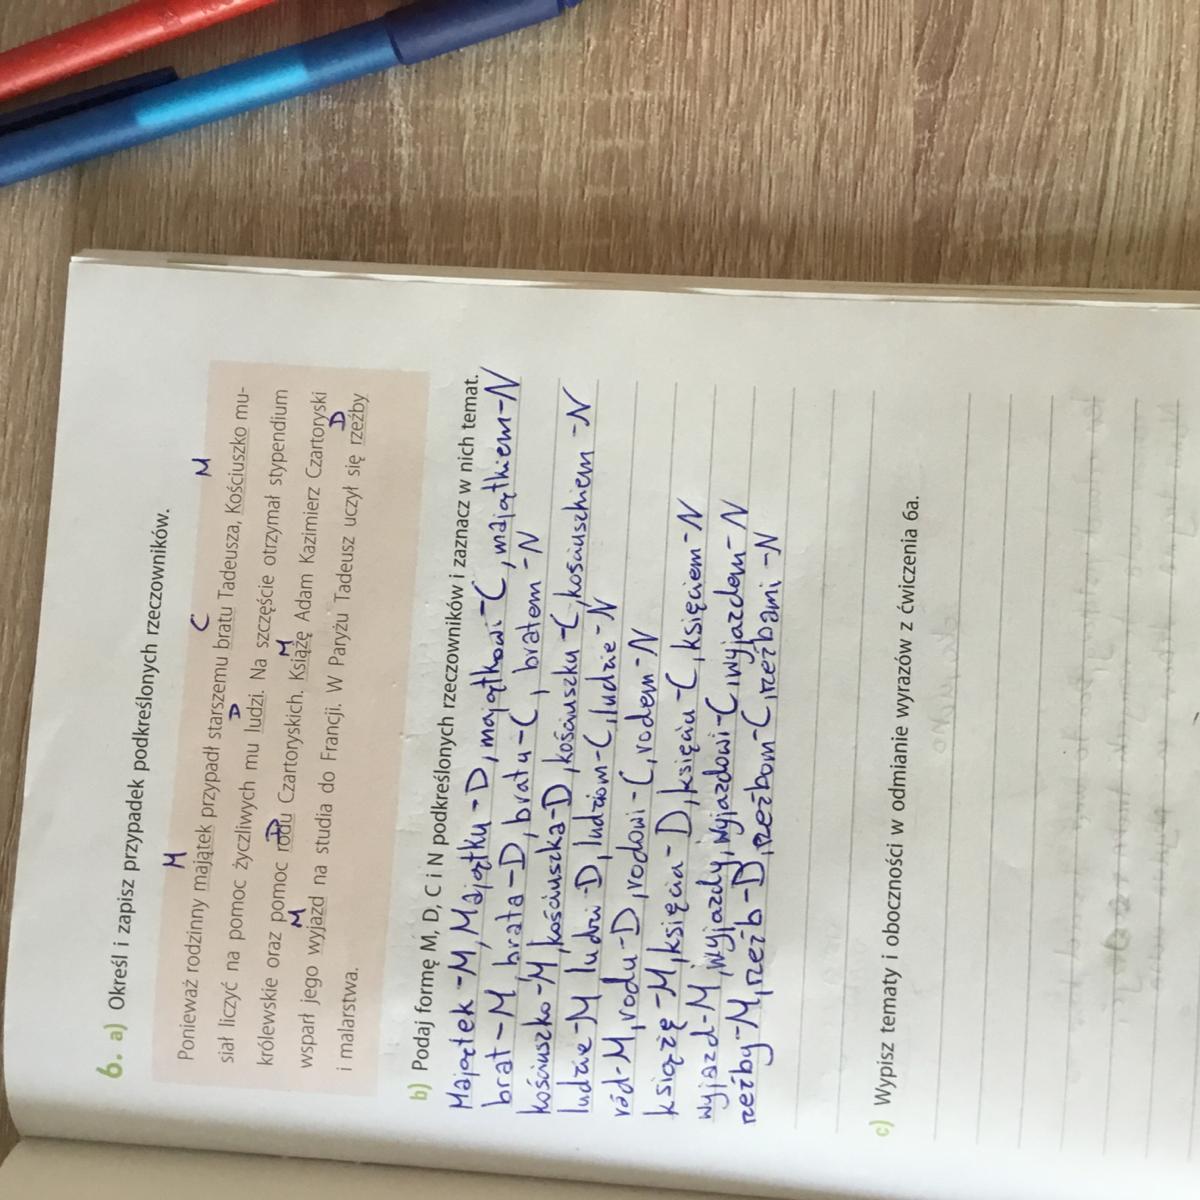 6. a) Określ i zapisz przypadek podkreślonych rzeczowników.
M C M
Ponieważ rodzinny majątek przypadł starszemu bratu Tadeusza, Kościuszko mu-
D
siał liczyć na pomoc życzliwych mu ludzi. Na szczęście otrzymał stypendium
D M
królewskie oraz pomoc rodu Czartoryskich. Książę Adam Kazimierz Czartoryski
M D
wsparł jego wyjazd na studia do Francji. W Paryżu Tadeusz uczył się rzeźby
i malarstwa.
b) Podaj formę M, D, C i N podkreślonych rzeczowników i zaznacz w nich temat.
Majątek - M, Majątku - D, majątkowi - C, majątkiem - N
brat - M, brata - D, bratu - C, bratem - N
kościuszko - M, kościuszka - D, kościuszku - C, kościuszkiem - N
ludzie - M ludzi - D, ludziom - C, ludzie - N
ród - M, rodu - D, rodowi - C, rodem - N
książę - M, księcia - D, księciu - C, księciem - N
wyjazd - M, wyjazdy, wyjazdowi - C, wyjazdem - N
rzeźby - M, rzeźb - D, rzeźbom - C, rzeźbami - N
c) Wypisz tematy i oboczności w odmianie wyrazów z ćwiczenia 6a.